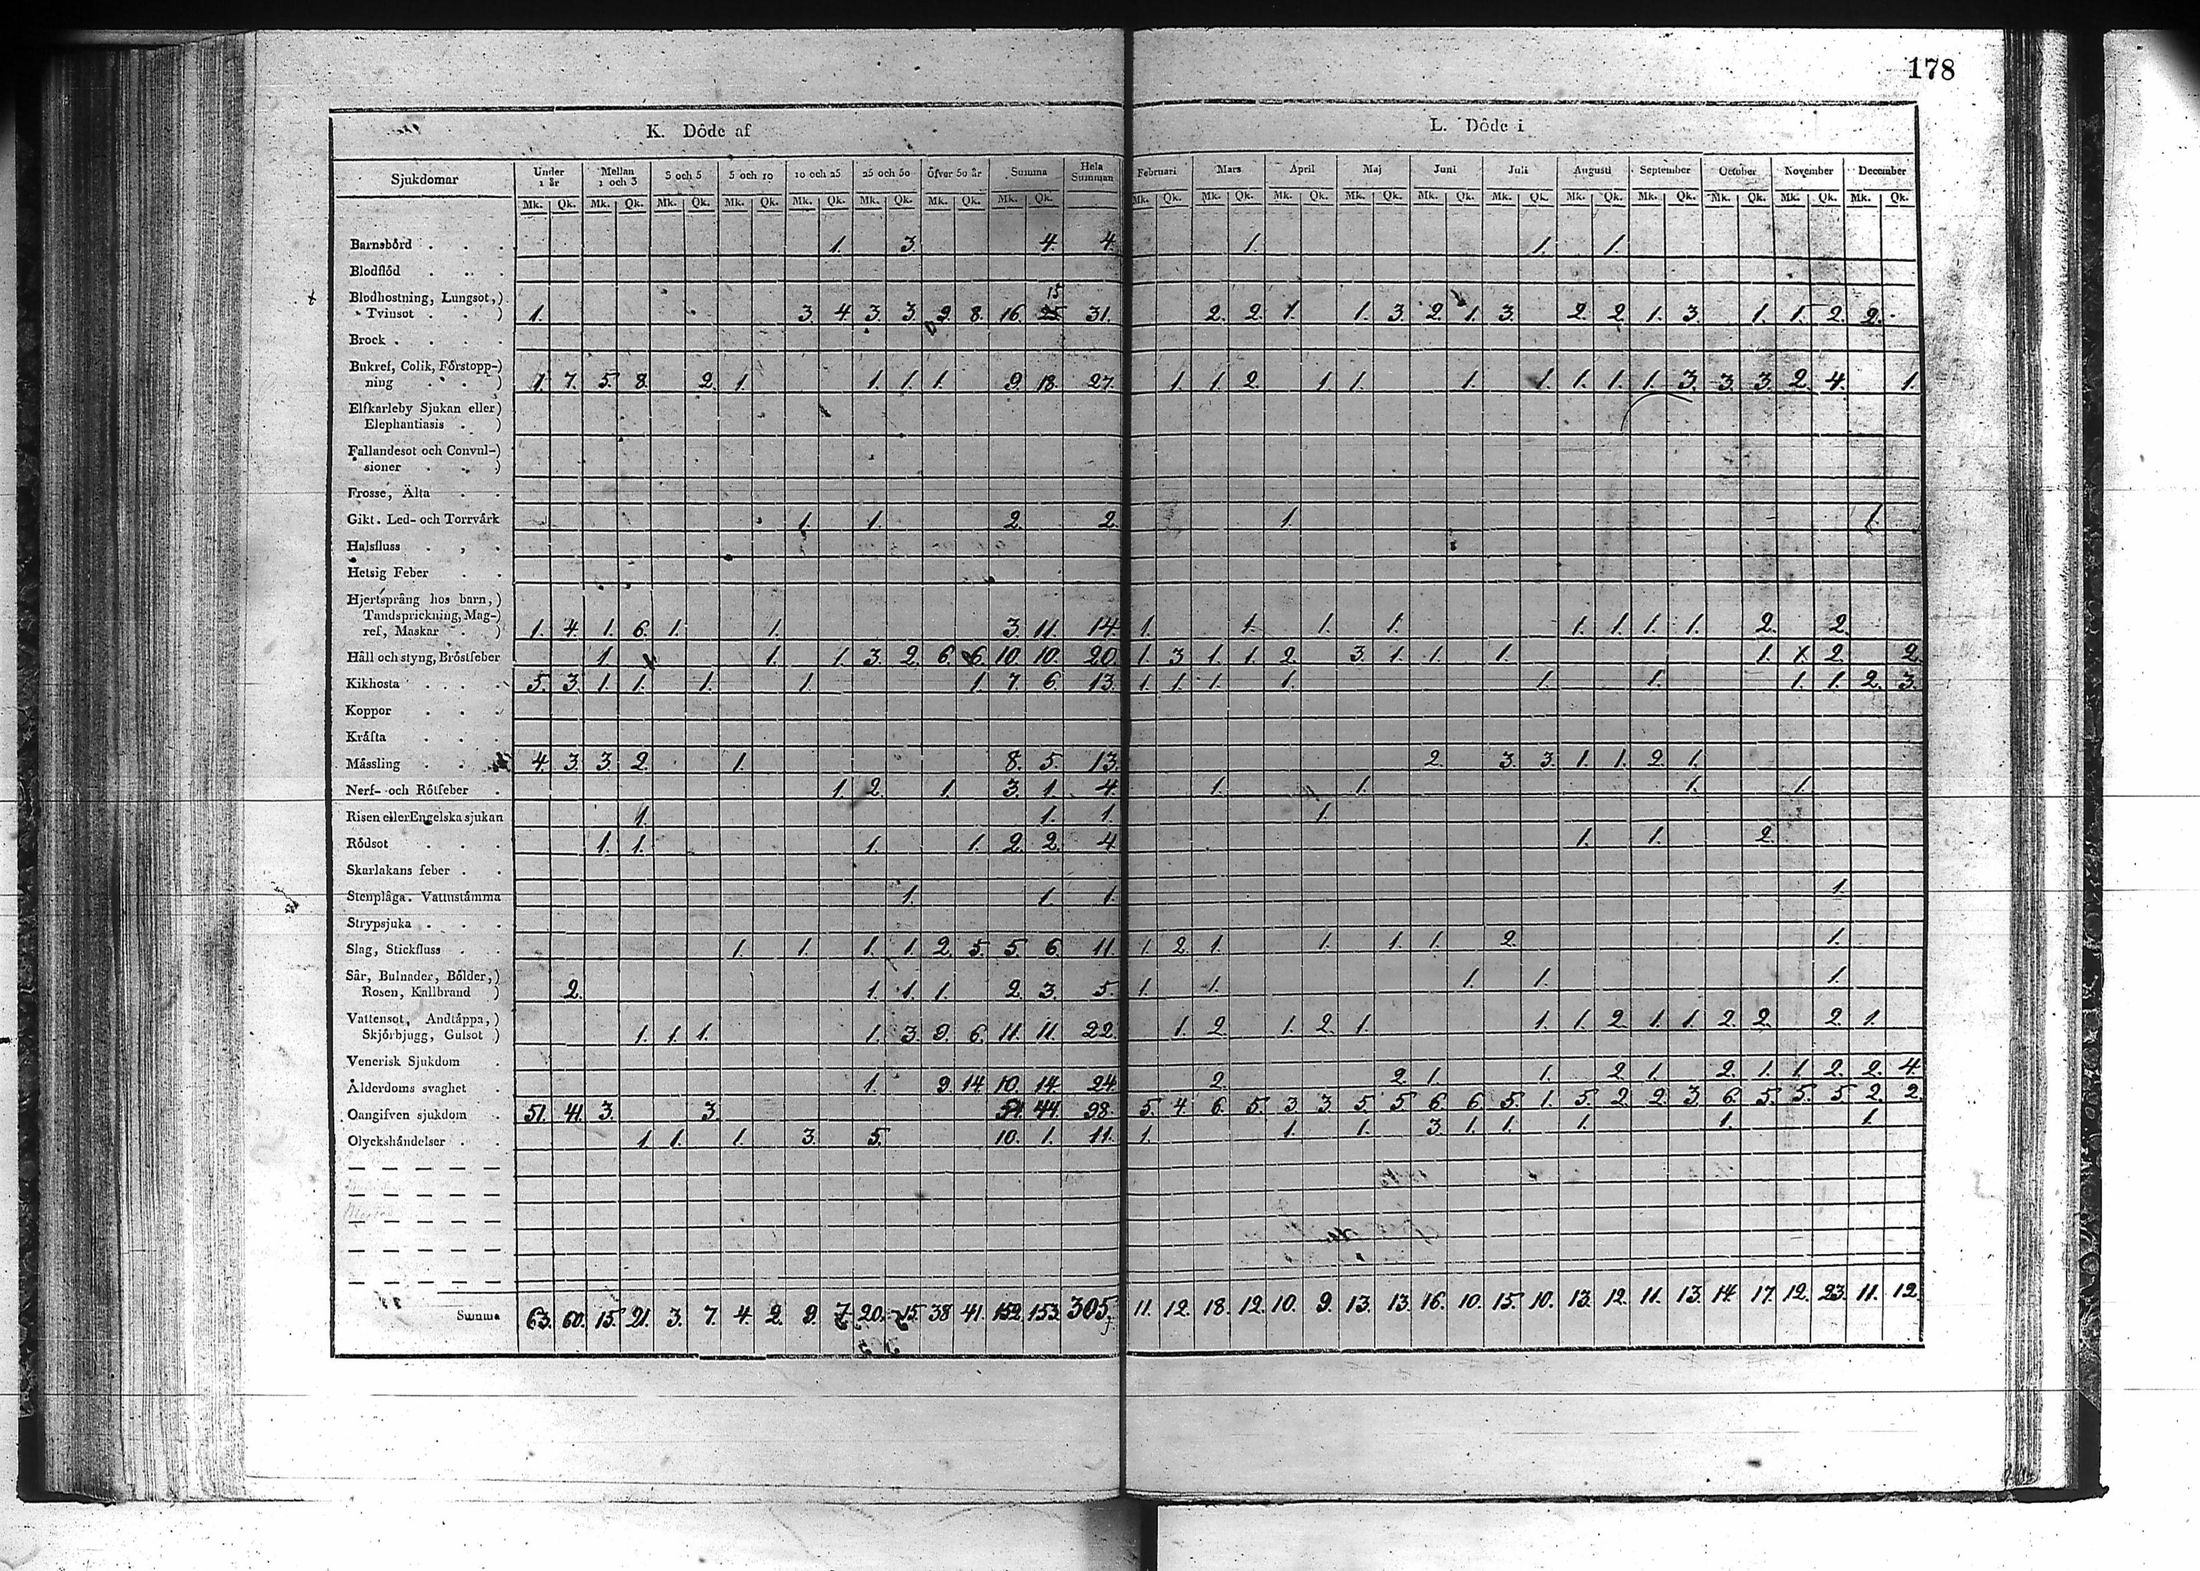 178
K. Döde af
L. Döde i
Sjukdomar Under 1 år Mellan 1 och 3 3 och 5 5 och 10 10 och 25 25 och 50 Öfver 50 år Summa Hela Summan Februari Mars April Maj Juni Juli Augusti September October November December
Mk. Qk. Mk. Qk. Mk. Qk. Mk. Qk. Mk. Qk. Mk. Qk. Mk. Qk. Mk. Qk. Mk. Qk. Mk. Qk. Mk. Qk. Mk. Qk. Mk. Qk. Mk. Qk. Mk. Qk. Mk. Qk. Mk. Qk. Mk. Qk. Mk. Qk.
Barnsbörd . . . 1. 3. 4. 4. 1. 1. 1.
Blodflöd . . .
Blodhostning, Lungsot,) 15
Tvinsot . . ) 1. 3. 4. 3. 3. 2. 8. 16. 25 31. 2. 2. 1. 1. 3. 2. 1. 3. 2. 2. 1. 3. 1. 1. 2. 2.
Brock . . . .
Bukref, Colik, Förstopp-)
ning . . . ) 1. 7. 5. 8. 2. 1. 1. 1. 1. 9. 18. 27. 1. 1. 2. 1. 1. 1. 1. 1. 1. 1. 3. 3. 3. 2. 4. 1.
Elfkarleby Sjukan eller)
Elephantiasis . )
Fallandesot och Convul-)
sioner . . )
Frosse, Älta . .
Gikt. Led- och Torrvärk 1. 1. 2. 2. 1. 1.
Halsfluss . . .
Hetsig Feber . .
Hjertsprång hos barn,)
Tandsprickning, Mag-)
ref, Maskar . ) 1. 4. 1. 6. 1. 1. 3. 11. 14. 1. 1. 1. 1. 1. 1. 1. 1. 2. 2.
Håll och styng, Bröstfeber 1. 1. 1. 3. 2. 6. 6. 10. 10. 20. 1. 3. 1. 1. 2. 3. 1. 1. 1. 1. 1. 2. 2.
Kikhosta . . . . 5. 3. 1. 1. 1. 1. 1. 7. 6. 13. 1. 1. 1. 1. 1. 1. 1. 1. 2. 3.
Koppor . . .
Kräfta . . .
Mässling . . . 4. 3. 3. 2. 1. 8. 5. 13. 2. 3. 3. 1. 1. 2. 1.
Nerf- och Rötfeber . 1. 2. 1. 3. 1. 4. 1. 1. 1. 1.
Risen eller Engelska sjukan 1. 1. 1. 1.
Rödsot . . . 1. 1. 1. 1. 2. 2. 4. 1. 1. 2.
Skarlakans feber . .
Stenplåga. Vattustämma 1. 1. 1. 1.
Strypsjuka . . .
Slag, Stickfluss . . 1. 1. 1. 1. 2. 5. 5. 6. 11. 1. 2. 1. 1. 1. 1. 2. 1.
Sår, Bulnader, Bölder,)
Rosen, Kallbrand ) 2. 1. 1. 1. 2. 3. 5. 1. 1. 1. 1. 1.
Vattensot, Andtäppa,)
Skjörbjugg, Gulsot ) 1. 1. 1. 1. 3. 9. 6. 11. 11. 22. 1. 2. 1. 2. 1. 1. 1. 2. 1. 1. 2. 2. 2. 1.
Venerisk Sjukdom .
Ålderdoms svaghet . 1. 9. 14. 10. 14. 24. 2. 2. 1. 1. 2. 1. 2. 1. 1. 2. 2. 4.
Oangifven sjukdom . 51. 41. 3. 3. 54. 44. 98. 5. 4. 6. 5. 3. 3. 5. 5. 6. 6. 5. 1. 5. 2. 2. 3. 6. 5. 5. 5. 2. 2.
Olyckshändelser . . 1. 1. 1. 3. 5. 10. 1. 11. 1. 1. 1. 3. 1. 1. 1. 1. 1.
Summa 63. 60. 15. 21. 3. 7. 4. 2. 9. 7. 20. 15. 38 41. 152. 153. 305. 11. 12. 18. 12. 10. 9. 13. 13. 16. 10. 15. 10. 13. 12. 11. 13. 14. 17. 12. 23. 11. 12.